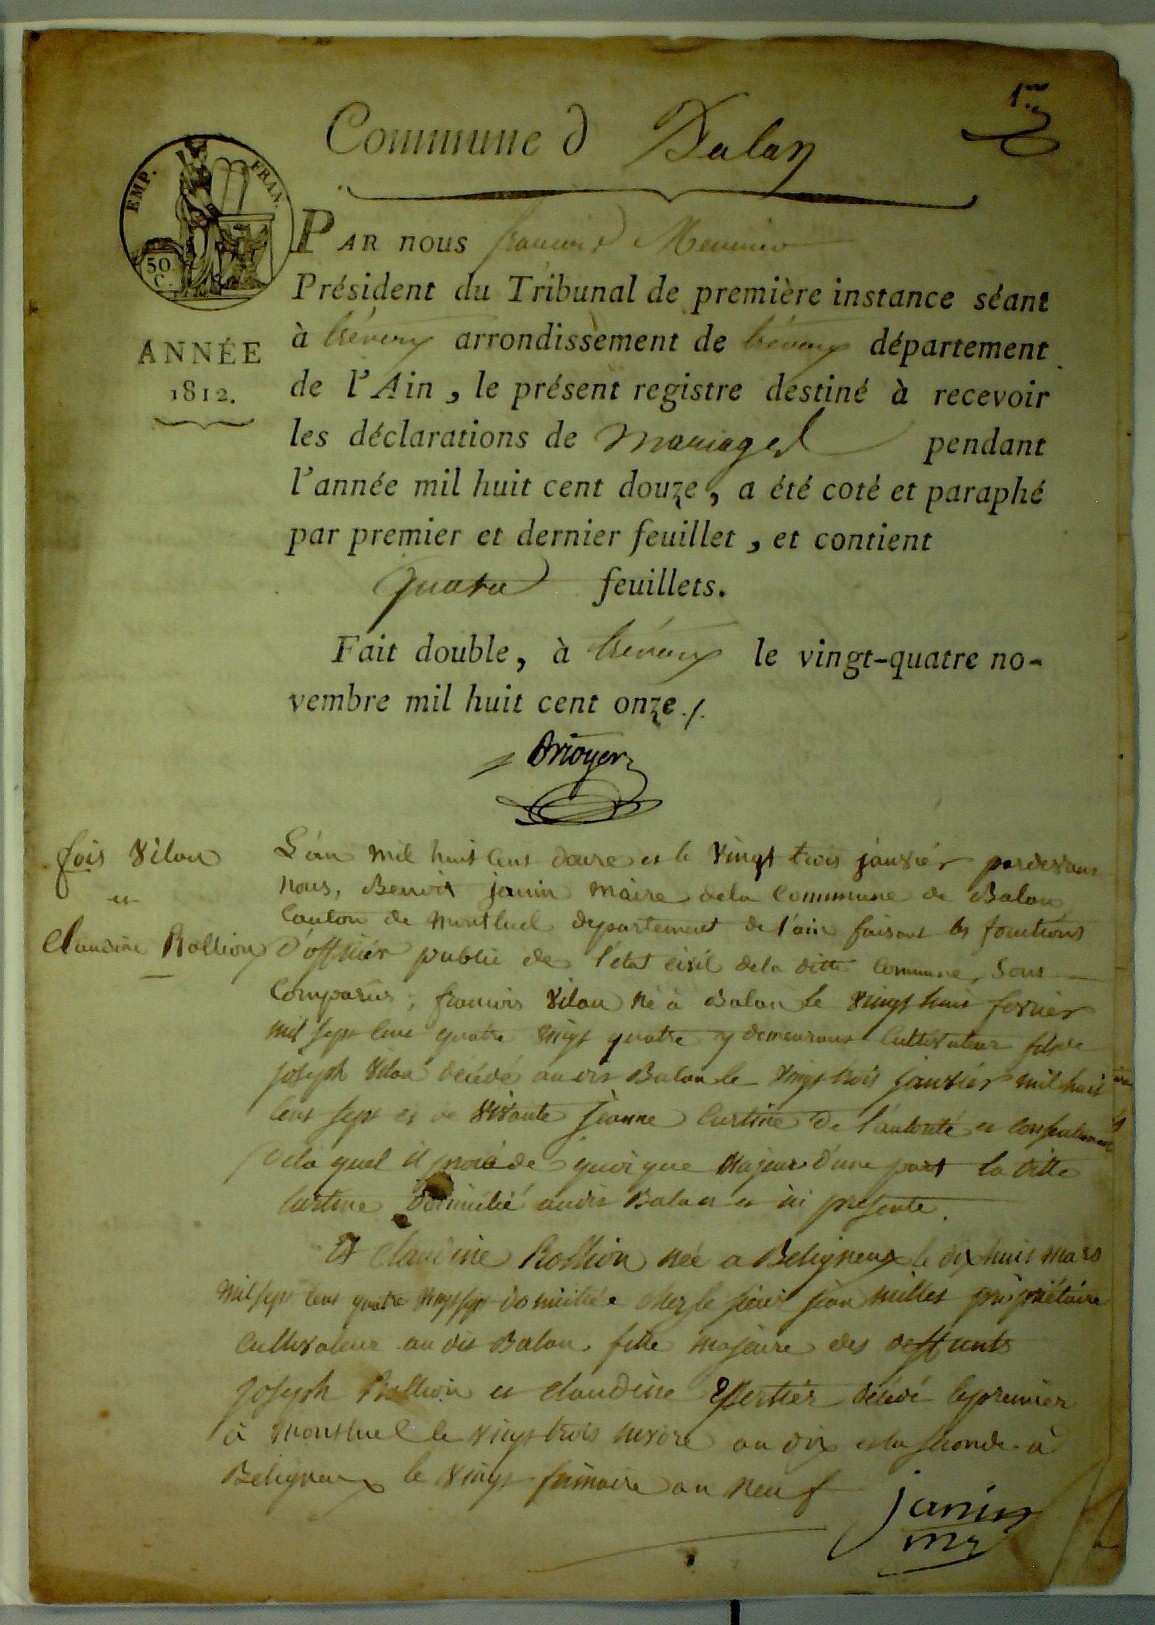 1er
Commune d Balan
EMP. FRAN.
50
C.
PAR nous françois Meunier
Président du Tribunal de première instance séant
à trévoux arrondissement de trévoux département
ANNÉE
1812.
de l'Ain, le présent registre destiné à recevoir
les déclarations de Mariages pendant
l'année mil huit cent douze, a été coté et paraphé
par premier et dernier feuillet, et contient
quatre feuillets.
Fait double, à trévoux le vingt-quatre no-
vembre mil huit cent onze./.
fois Vilan
et
Claudine Rollion
L'an mil huit cent douze et le vingt trois janvier pardevant
nous, Benoit janin maire dela Commune de Balan
Canton de montluel departement de l'ain faisant les fonctions
d'officier public de l'état civil dela ditte Commune, Sont
Comparus, françois Vilan né à Balan le vingt huit fevrier
mil sept cent quatre vingt quatre y demeurant Cultivateur fils de
joseph Vilan décédé audit Balan le vingt trois janvier mil huit
cent sept et de vivante jeanne de l'autorité et consentement
dela quel il procéde quoique majeur d'une part la ditte
domicilié audit Balan et ici presente.
Et Claudine Rollion née a Beligneux le dix huit mars
mil sept cent quatre vingt sept domiciliée chez le sieur jean millet propriétaire
Cultivateur au dit Balan, fille majeure des deffunts
joseph Rollion et claudine décédé le premier
à montluel le vingt trois nivore an dix et la seconde à
Beligneux le vingt frimaire an neuf
janin
mre